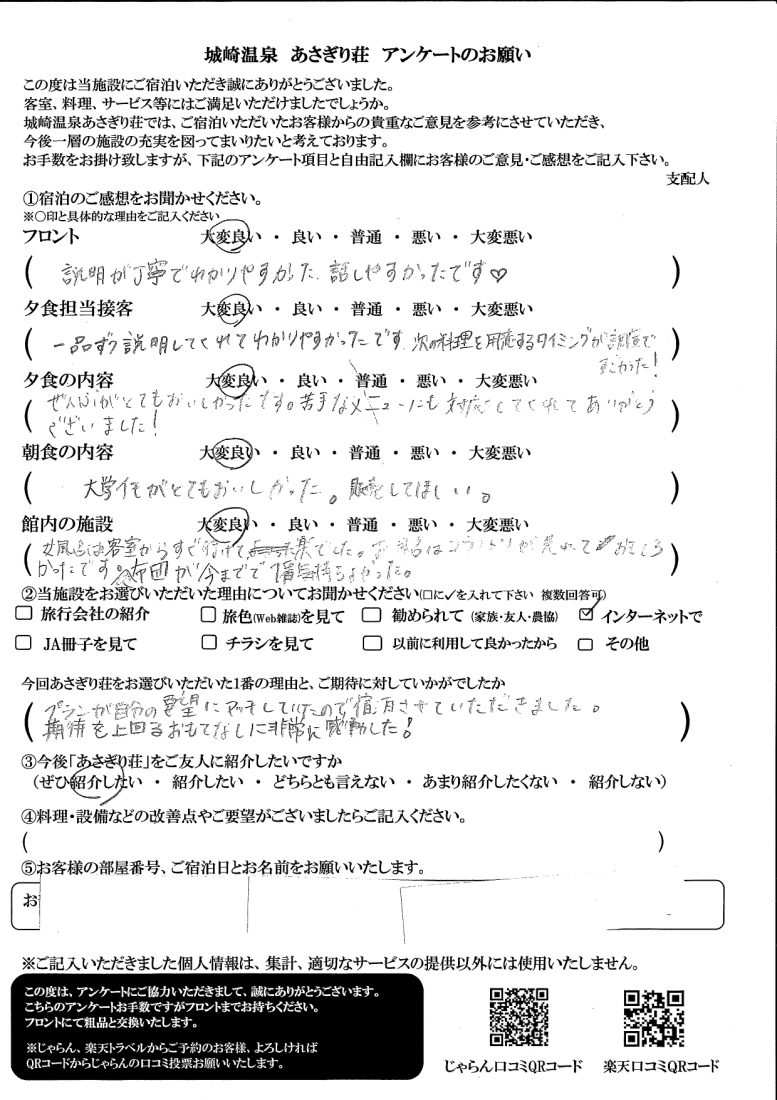 城崎温泉 あさぎり荘 アンケートのお願い
この度は当施設にご宿泊いただき誠にありがとうございました。
客室、料理、サービス等にはご満足いただけましたでしょうか。
城崎温泉あさぎり荘では、ご宿泊いただいたお客様からの貴重なご意見を参考にさせていただき、
今後一層の施設の充実を図ってまいりたいと考えております。
お手数をお掛け致しますが、下記のアンケート項目と自由記入欄にお客様のご意見・ご感想をご記入下さい。
支配人
①宿泊のご感想をお聞かせください。
※○印と具体的な理由をご記入ください
フロント 大変良い ・ 良い ・ 普通 ・ 悪い ・ 大変悪い
( 説明が丁寧でわかりやすかった、話しやすかったです♡ )
夕食担当接客 大変良い ・ 良い ・ 普通 ・ 悪い ・ 大変悪い
( 一品ずつ説明してくれてわかりやすかったです。次の料理を用意するタイミングが絶で
すごかった! )
夕食の内容 大変良い ・ 良い ・ 普通 ・ 悪い ・ 大変悪い
( ぜんぶがとてもおいしかったです。苦手なメニューにも対応してくれてありがとう
ございました! )
朝食の内容 大変良い ・ 良い ・ 普通 ・ 悪い ・ 大変悪い
( 大学イモがとてもおいしかった。販売してほしい。 )
館内の施設 大変良い ・ 良い ・ 普通 ・ 悪い ・ 大変悪い
( 風呂は客室からすぐ行けて楽でした。お は が見れておもしろ
かったです。布団が今までで1番気持ちよかった。 )
②当施設をお選びいただいた理由についてお聞かせください(□に✓を入れて下さい 複数回答可)
□ 旅行会社の紹介 □ 旅色(Web雑誌)を見て □ 勧められて (家族・友人・農協) ☑ インターネットで
□ JA冊子を見て □ チラシを見て □ 以前に利用して良かったから □ その他
今回あさぎり荘をお選びいただいた1番の理由と、ご期待に対していかがでしたか
( プランが自分の要望にマッチしていたので宿泊させていただきました。
期待を上回るおもてなしに非常に感動した! )
③今後「あさぎり荘」をご友人に紹介したいですか
(ぜひ紹介したい ・ 紹介したい ・ どちらとも言えない ・ あまり紹介したくない ・ 紹介しない)
④料理・設備などの改善点やご要望がございましたらご記入ください。
( )
⑤お客様の部屋番号、ご宿泊日とお名前をお願いいたします。
お
※ご記入いただきました個人情報は、集計、適切なサービスの提供以外には使用いたしません。
この度は、アンケートにご協力いただきまして、誠にありがとうございます。
こちらのアンケートお手数ですがフロントまでお持ちください。
フロントにて粗品と交換いたします。
※じゃらん、楽天トラベルからご予約のお客様、よろしければ
QRコードからじゃらんの口コミ投票お願いいたします。
じゃらん口コミQRコード 楽天口コミQRコード